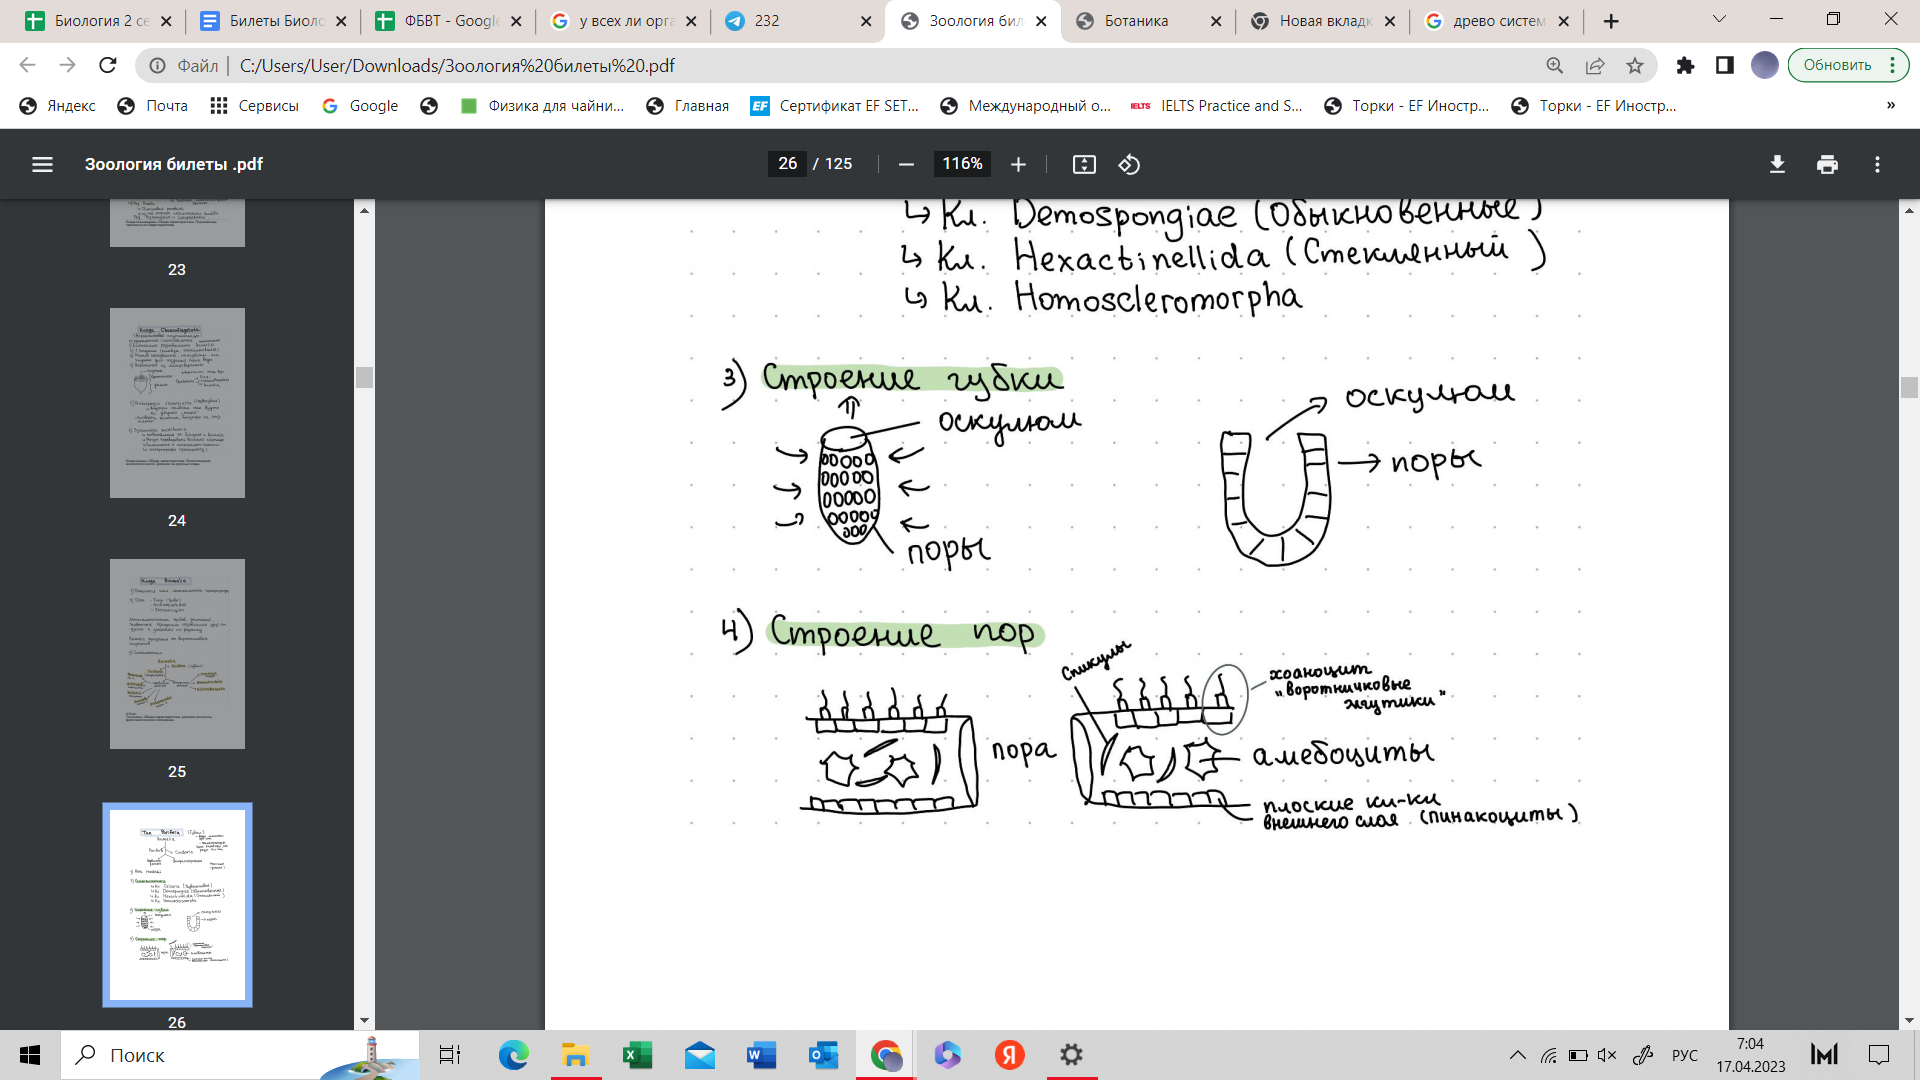 Биология 2 се
Билеты Биоло
ФБВТ - Google
у всех ли орга
232
Зоология бил
Ботаника
Новая вкладк
древо систем
Файл
C:/Users/User/Downloads/Зоология%20билеты%20.pdf
Обновить
Яндекс
Почта
Сервисы
Google
Физика для чайни...
Главная
EF Сертификат EF SET...
Международный о...
IELTS IELTS Practice and S...
Торки - EF Иностр...
Торки - EF Иностр...
»
Зоология билеты .pdf
26 / 125
116%
23
24
25
26
↳ Кл. Demospongiae (Обыкновенные)
↳ Кл. Hexactinellida (Стеклянный)
↳ Кл. Homoscleromorpha
3) Строение губки
оскулюм
поры
оскулюм
поры
4) Строение пор
пора
Спикулы
хоаноцит
"воротничковые
жгутики"
амебоциты
плоские кл-ки
внешнего слоя (пинакоциты)
Поиск
РУС
7:04
17.04.2023